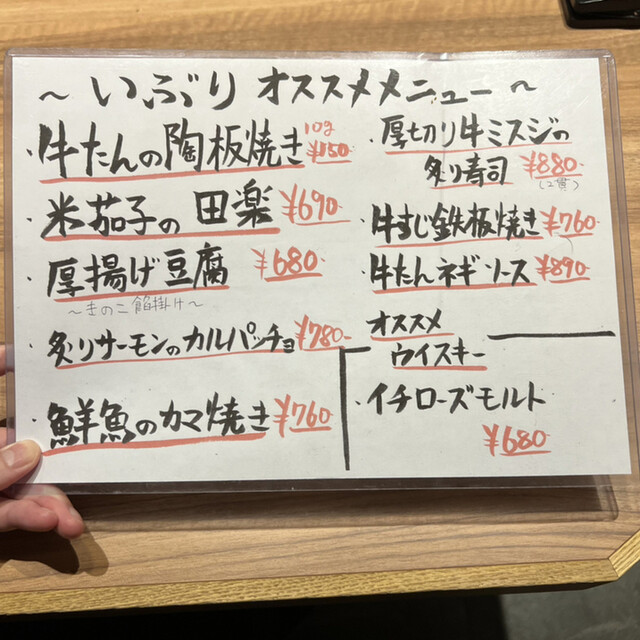 ～いぶりオススメメニュー～
・牛たんの陶板焼き 10g ¥150
・米茄子の田楽 ¥690
・厚揚げ豆腐 ¥680
～きのこ餡掛け～
・炙りサーモンのカルパッチョ ¥780
・鮮魚のカマ焼き ¥760
・厚切り牛ミスジの
炙り寿司 ¥880
(2貫)
・牛すじ鉄板焼き ¥760
・牛たんネギソース ¥890
オススメ
ウイスキー
・イチローズモルト
¥680